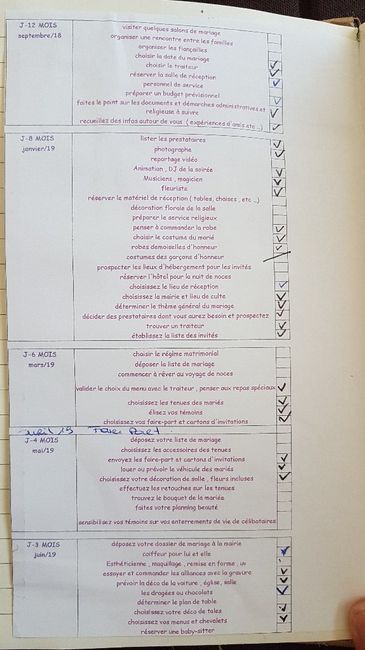 J-12 MOIS
septembre/18
visiter quelques salons de mariage
organiser une rencontre entre les familles
organiser les fiançailles
choisir la date du mariage
choisir le traiteur
réserver la salle de réception
personnel de service
préparer un budget prévisionnel
faites le point sur les documents et démarches administratives et
religieuse à suivre
recueillez des infos autour de vous ( expériences d'amis etc ..)
J-8 MOIS
janvier/19
lister les prestataires
photographe
reportage vidéo
Animation , DJ de la soirée
Musiciens , magicien
fleuriste
réserver le matériel de réception ( tables, chaises , etc ..)
décoration florale de la salle
préparer le service religieux
penser à commander la robe
choisir le costume du marié
robes demoiselles d'honneur
costumes des garçons d'honneur
prospecter les lieux d'hébergement pour les invités
réserver l'hôtel pour la nuit de noces
choisissez le lieu de réception
choisissez la mairie et lieu de culte
déterminer le thème général du mariage
décider des prestataires dont vous aurez besoin et prospectez
trouver un traiteur
établissez la liste des invités
J-6 MOIS
mars/19
choisir le régime matrimonial
déposer la liste de mariage
commencer à rêver au voyage de noces
valider le choix du menu avec le traiteur , penser aux repas spéciaux
choisissez les tenues des mariés
élisez vos témoins
choisissez vos faire-part et cartons d'invitations
J-4 MOIS
mai/19
déposez votre liste de mariage
choisissez les accessoires des tenues
envoyez les faire-part et cartons d'invitations
louer ou prévoir le véhicule des mariés
choisissez votre décoration de salle , fleurs incluses
effectuez les retouches sur les tenues
trouvez le bouquet de la mariée
faites votre planning beauté
sensibilisez vos témoins sur vos enterrements de vie de célibataires
J-3 MOIS
juin/19
déposez votre dossier de mariage à la mairie
coiffeur pour lui et elle
Esthéticienne , maquillage , remise en forme , uv
essayer et commander les alliances avec la gravure
prévoir la déco de la voiture , église, salle
les dragées ou chocolats
déterminer le plan de table
choisissez votre déco de tables
choisissez vos menus et chevalets
réserver une baby-sitter